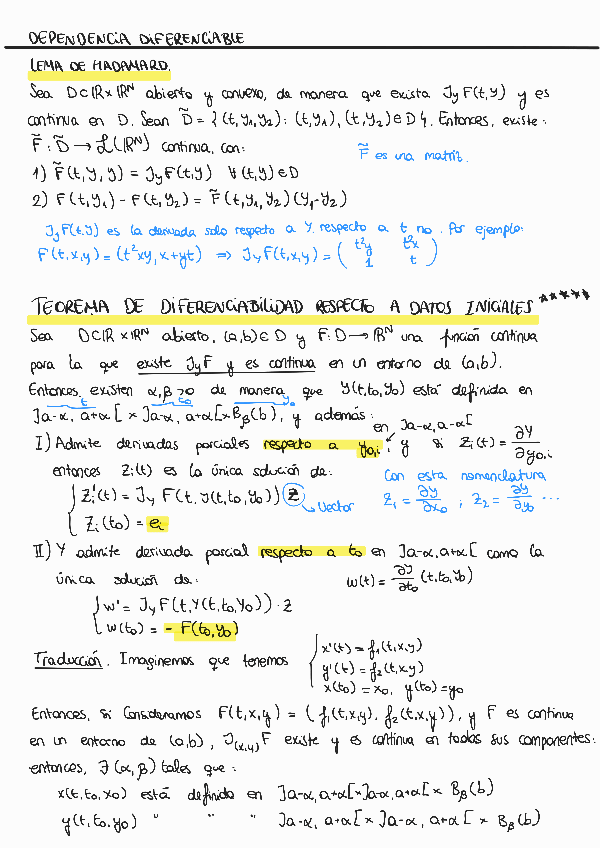 DEPENDENCIA DIFERENCIABLE
LEMA DE HADAMARD.
Sea D⊂ℝ×ℝᴺ abierto y convexo, de manera que exista J_y F(t,y) y es
continua en D. Sean D̃ = {(t,y₁,y₂): (t,y₁),(t,y₂)∈D}. Entonces, existe:
F̃: D̃ → ℒ(ℝᴺ) continua, con:
F̃ es una matriz.
1) F̃(t,y,y) = J_y F(t,y) ∀(t,y)∈D
2) F(t,y₁) - F(t,y₂) = F̃(t,y₁,y₂)(y₁-y₂)
J_y F(t,y) es la derivada solo respecto a y, respecto a t no. Por ejemplo:
F(t,x,y) = (t²xy, x+yt) ⇒ J_y F(t,x,y) = ( t²y t²x
1 t )
TEOREMA DE DIFERENCIABILIDAD RESPECTO A DATOS INICIALES *****
Sea D⊂ℝ×ℝᴺ abierto, (a,b)∈D y F: D→ℝᴺ una función continua
para la que existe J_y F y es continua en un entorno de (a,b).
Entonces, existen α,β>0 de manera que Y(t,t₀,y₀) está definida en
t t₀ y₀
]a-α, a+α[ × ]a-α, a+α[ × B_β(b), y además:
en ]a-α, a-α[
I) Admite derivadas parciales respecto a y₀,ᵢ, y si Zᵢ(t) = ∂Y/∂y₀,ᵢ
entonces Zᵢ(t) es la única solución de:
Zᵢ'(t) = J_y F(t,Y(t,t₀,y₀)) Z
Zᵢ(t₀) = eᵢ
Vector
Con esta nomenclatura
Z₁ = ∂Y/∂x₀ ; Z₂ = ∂Y/∂y₀ ...
II) Y admite derivada parcial respecto a t₀ en ]a-α, a+α[ como la
única solución de: w(t) = ∂Y/∂t₀ (t,t₀,y₀)
w' = J_y F(t,Y(t,t₀,y₀)) · Z
w(t₀) = - F(t₀,y₀)
Traducción. Imaginemos que tenemos
x'(t) = f₁(t,x,y)
y'(t) = f₂(t,x,y)
x(t₀) = x₀, y(t₀) = y₀
Entonces, si consideramos F(t,x,y) = (f₁(t,x,y), f₂(t,x,y)), y F es continua
en un entorno de (a,b), J_(x,y) F existe y es continua en todas sus componentes:
entonces, ∃(α,β) tales que:
x(t,t₀,x₀) está definida en ]a-α, a+α[×]a-α, a+α[ × B_β(b)
y(t,t₀,y₀) " " " ]a-α, a+α[ × ]a-α, a+α[ × B_β(b)